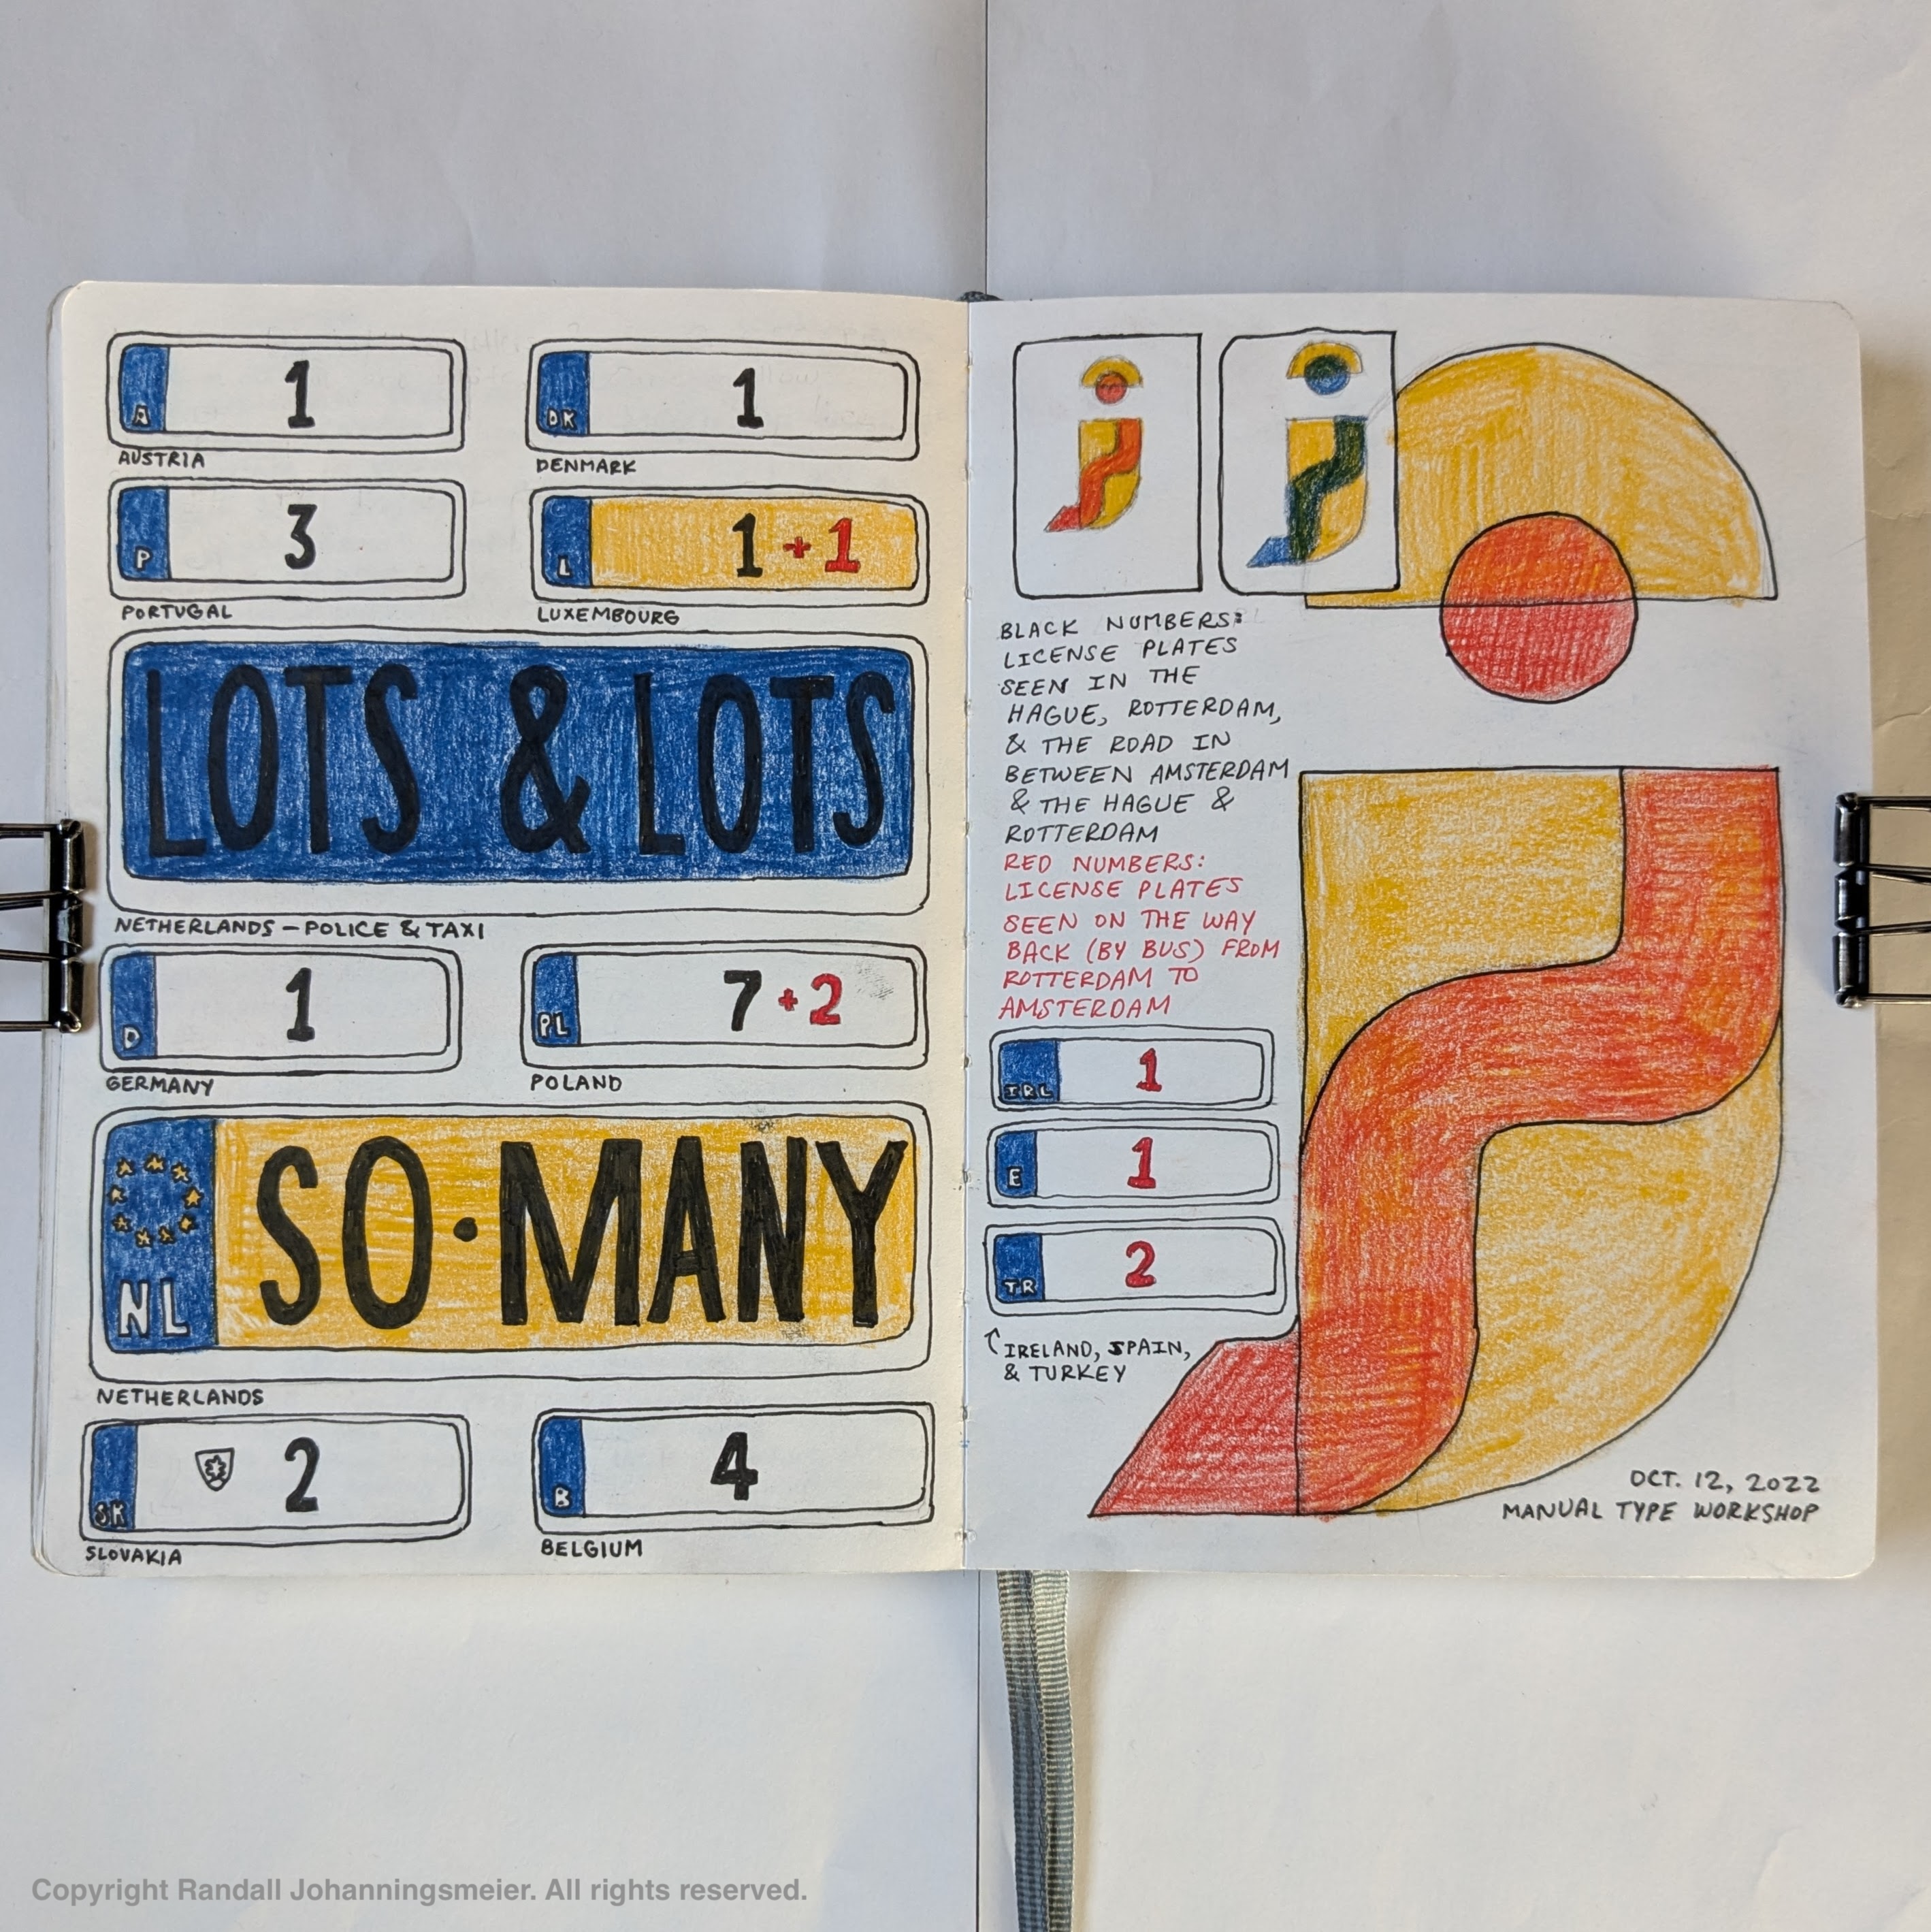 A
1
AUSTRIA
DK
1
DENMARK
P
3
PORTUGAL
L
1 + 1
LUXEMBOURG
LOTS & LOTS
NETHERLANDS – POLICE & TAXI
D
1
GERMANY
PL
7 + 2
POLAND
NL
SO·MANY
NETHERLANDS
SK
2
SLOVAKIA
B
4
BELGIUM
BLACK NUMBERS:
LICENSE PLATES
SEEN IN THE
HAGUE, ROTTERDAM,
& THE ROAD IN
BETWEEN AMSTERDAM
& THE HAGUE &
ROTTERDAM
RED NUMBERS:
LICENSE PLATES
SEEN ON THE WAY
BACK (BY BUS) FROM
ROTTERDAM TO
AMSTERDAM
IRL
1
E
1
TR
2
IRELAND, SPAIN,
& TURKEY
OCT. 12, 2022
MANUAL TYPE WORKSHOP
Copyright Randall Johanningsmeier. All rights reserved.